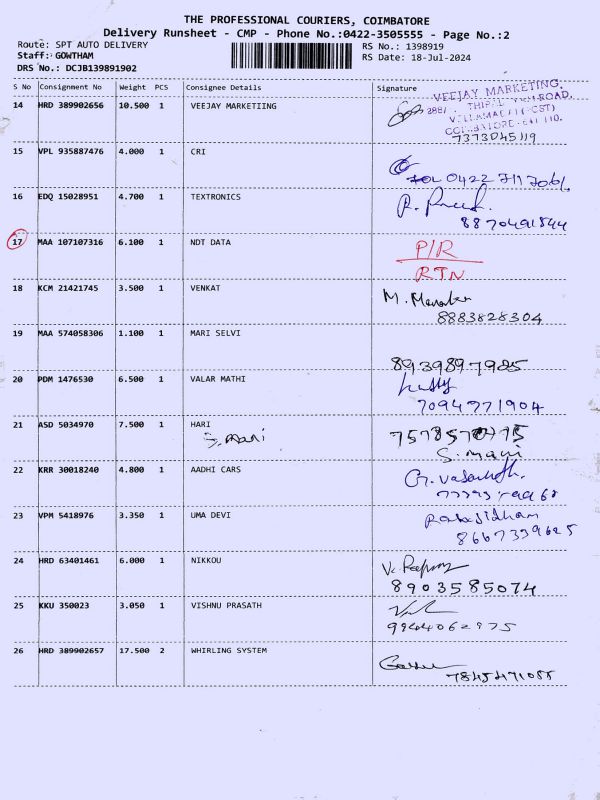 THE PROFESSIONAL COURIERS, COIMBATORE
Delivery Runsheet - CMP - Phone No.:0422-3505555 - Page No.:2
Route: SPT AUTO DELIVERY
RS No.: 1398919
Staff: GOWTHAM
RS Date: 18-Jul-2024
DRS No.: DCJB139891902
S No Consignment No Weight PCS Consignee Details Signature
VEEJAY MARKETING,
14 HRD 389902656 10.500 1 VEEJAY MARKETIING
ROAD,
7373045119
15 VPL 935887476 4.000 1 CRI
0422 711 7061
16 EDQ 15028951 4.700 1 TEXTRONICS
8870491844
17 MAA 107107316 6.100 1 NDT DATA P/R
RTN
18 KCM 21421745 3.500 1 VENKAT
8883828304
19 MAA 574058306 1.100 1 MARI SELVI
8939897985
20 PDM 1476530 6.500 1 VALAR MATHI
7094771904
21 ASD 5034970 7.500 1 HARI
S. mani S. mani
22 KRR 30018240 4.800 1 AADHI CARS
23 VPM 5418976 3.350 1 UMA DEVI
8667339625
24 HRD 63401461 6.000 1 NIKKOU
8903585074
25 KKU 350023 3.050 1 VISHNU PRASATH
9944062975
26 HRD 389902657 17.500 2 WHIRLING SYSTEM
7845471055